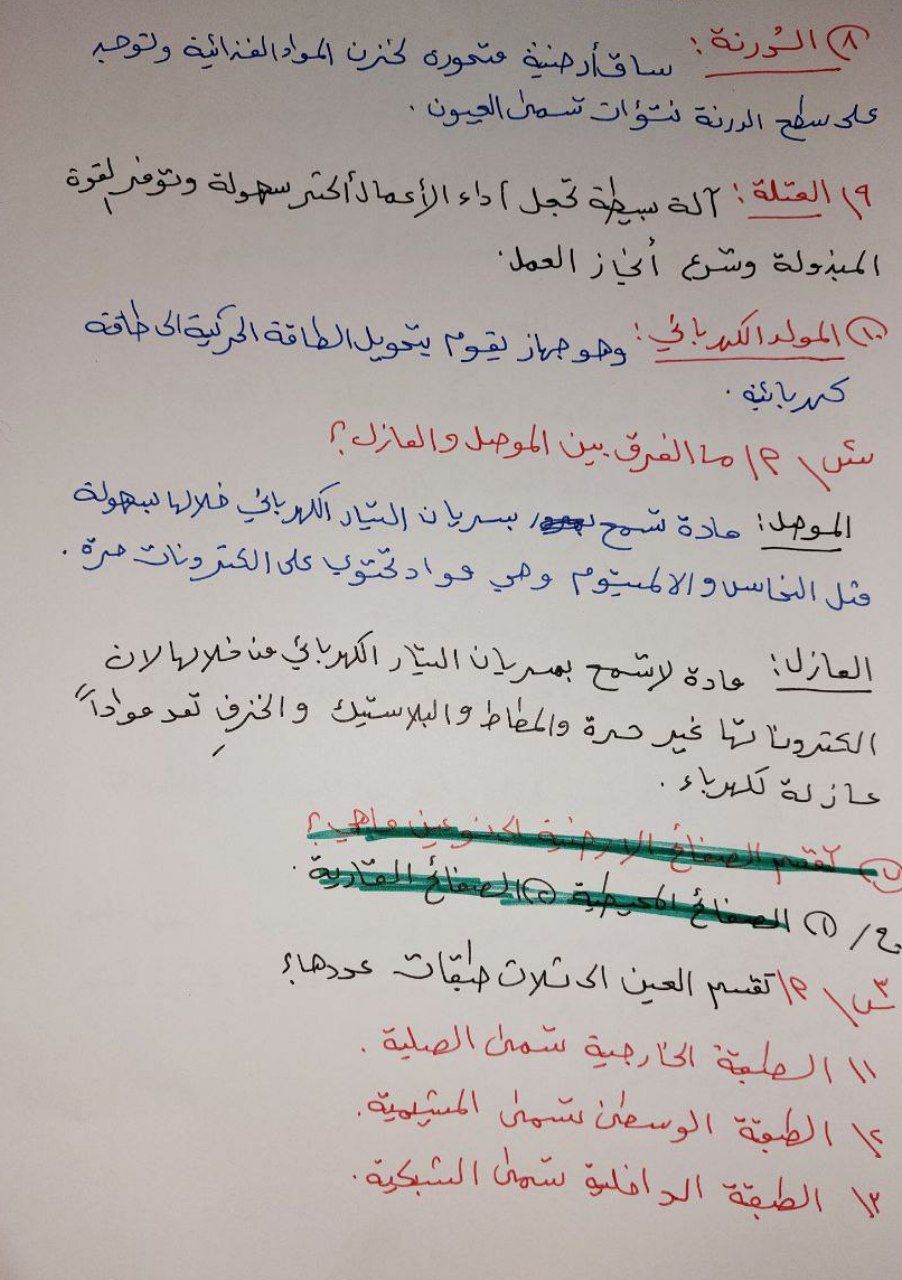 ٨) الدرنة: ساق أرضية متحورة لخزن المواد الغذائية وتوجد
على سطح الدرنة نتؤات تسمى العيون.
٩) العتلة: آلة بسيطة تجعل أداء الأعمال أكثر سهولة وتوفر لقوة
المبذولة وتسرع أنجاز العمل.
١٠) المولد الكهربائي: وهو جهاز يقوم بتحويل الطاقة الحركية الى طاقة
كهربائية.
س٢/ ما الفرق بين الموصل والعازل؟
الموصل: مادة تسمح بسريان التيار الكهربائي خلالها بسهولة
مثل النحاس والالمنيوم وهي مواد تحتوي على الكترونات حرة.
العازل: مادة لاتسمح بسريان التيار الكهربائي من خلالها لان
الكتروناتها غير حرة والمطاط والبلاستيك والخزف تعد مواداً
عازلة لكهرباء.
تقسم الصفائح الارضية الى نوعين ماهي؟
ج/ ١) الصفائح المحيطية ٢) الصفائح القارية.
س٣/ تقسم العين الى ثلاث طبقات عددها؟
١) الطبقة الخارجية تسمى الصلبة.
٢) الطبقة الوسطى تسمى المشيمية.
٣) الطبقة الداخلية تسمى الشبكية.